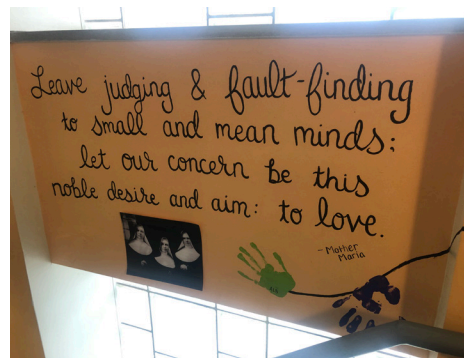 Leave judging & fault-finding
to small and mean minds:
let our concern be this
noble desire and aim: to love.
- Mother
Maria